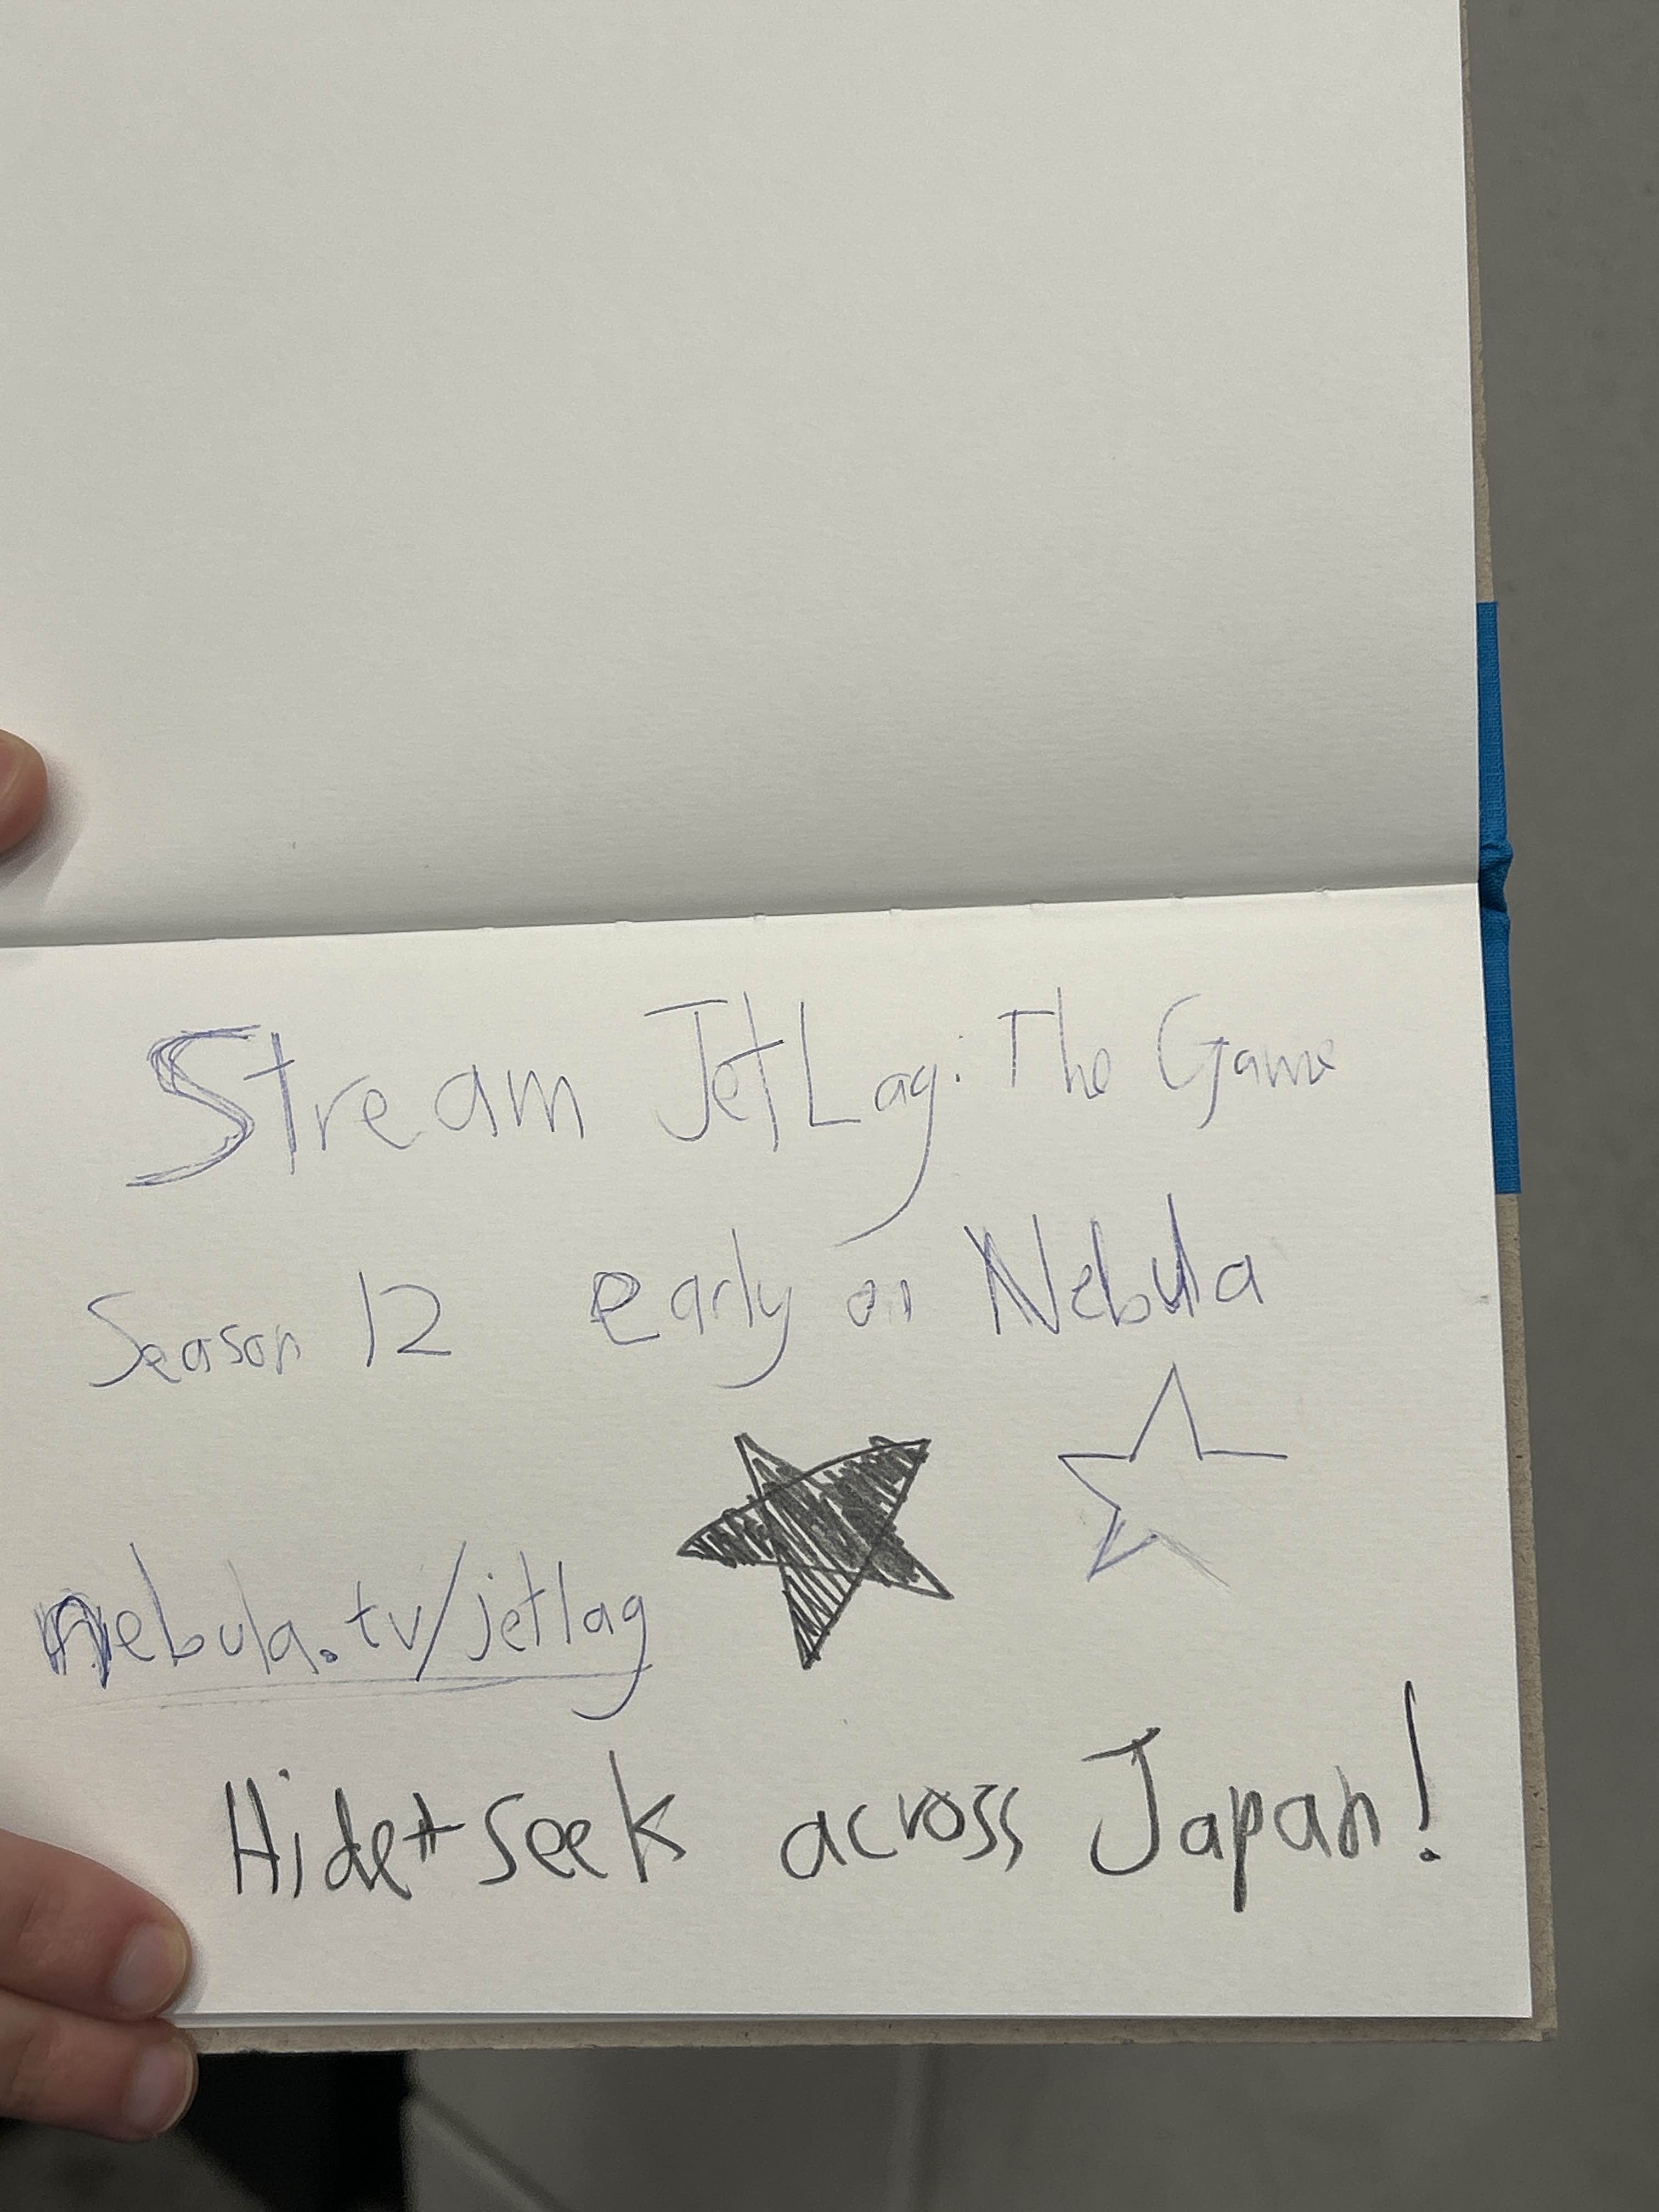 Stream JetLag: The Game
Season 12 early on Nebula
nebula.tv/jetlag
Hide+seek across Japan!